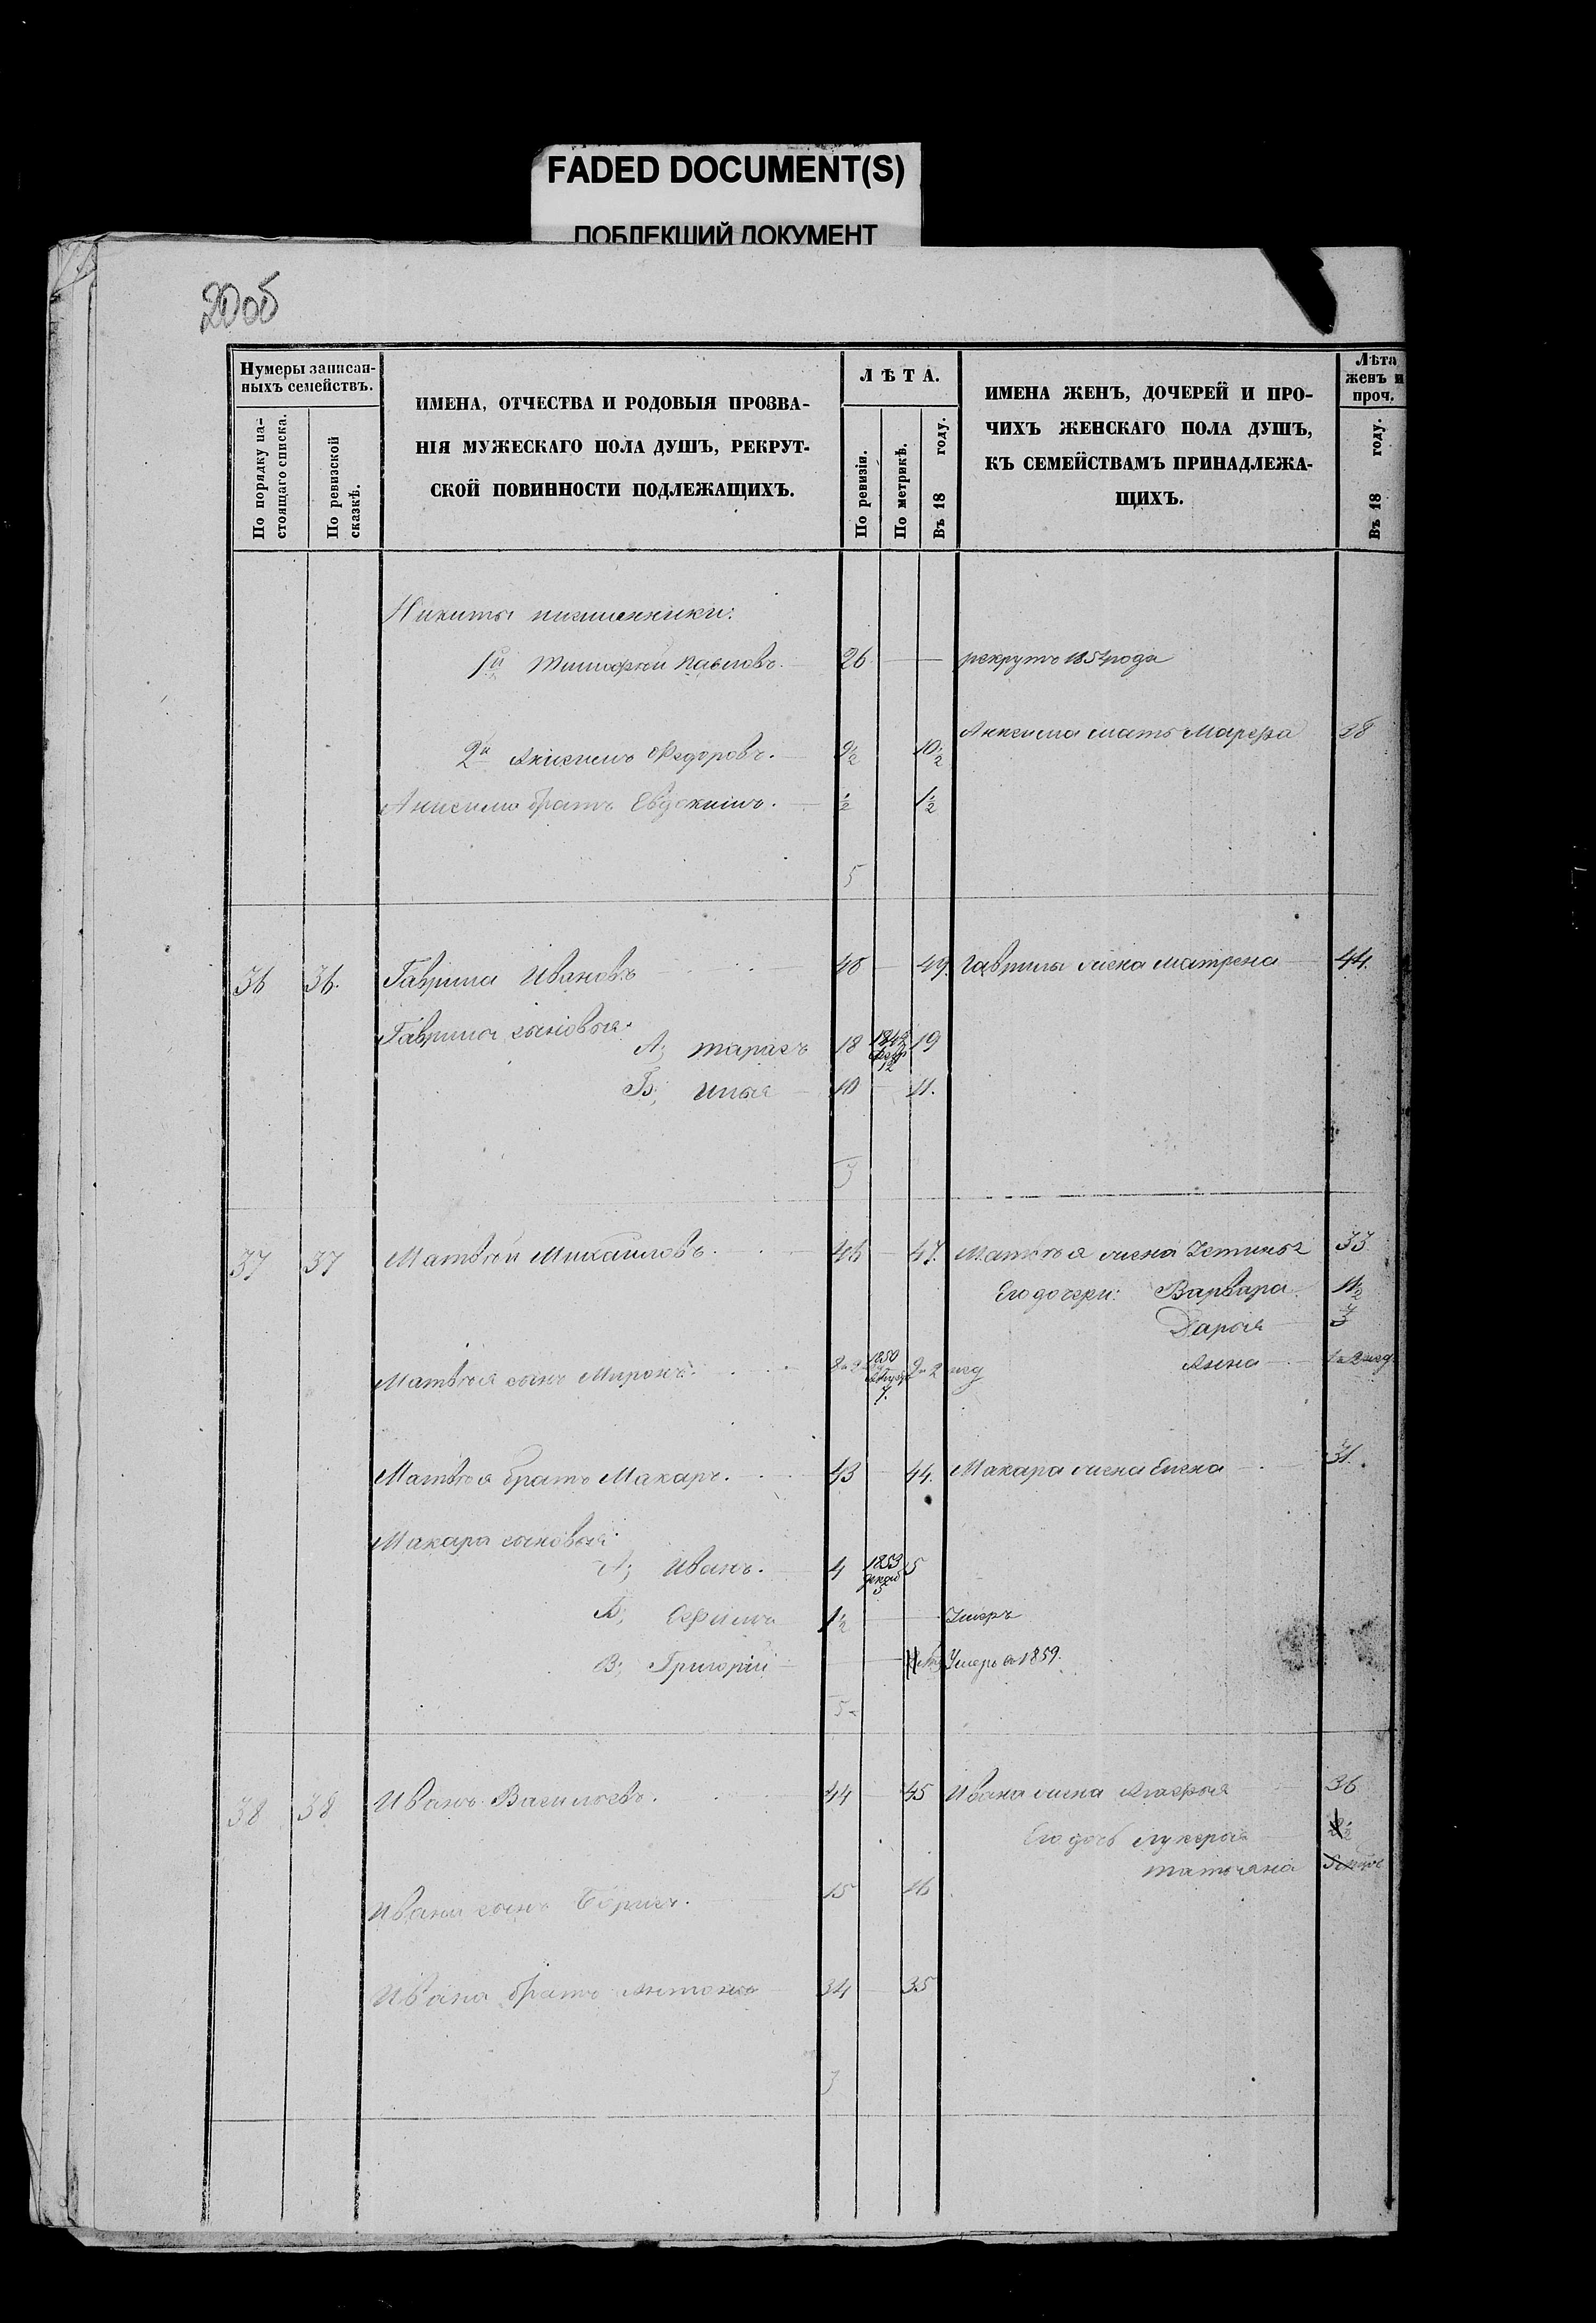 FADED DOCUMENT(S)
ПОБЛЕКШИЙ ДОКУМЕНТ
20об
Нумеры записан-
ныхъ семействъ.
По порядку на-
стоящаго списка.
По ревизской
сказкѣ.
ИМЕНА, ОТЧЕСТВА И РОДОВЫЯ ПРОЗВА-
НІЯ МУЖЕСКАГО ПОЛА ДУШЪ, РЕКРУТ-
СКОЙ ПОВИННОСТИ ПОДЛЕЖАЩИХЪ.
ЛѢТА.
По ревизіи.
По метрикѣ.
Въ 18 году.
ИМЕНА ЖЕНЪ, ДОЧЕРЕЙ И ПРО-
ЧИХЪ ЖЕНСКАГО ПОЛА ДУШЪ,
КЪ СЕМЕЙСТВАМЪ ПРИНАДЛЕЖА-
ЩИХЪ.
Лѣта
женъ и
проч.
Въ 18 году.
Никиты племянники:
1й Тимофей Павловъ. 26 рекрутъ 1854 года
Анисима мать Марфа 28
2й Анисимъ Федоровъ. 9½ 10½
Анисима братъ Евдокимъ. ½ 1½
5
36 36. Гаврила Ивановъ 48 49. Гаврилы жена Матрена 44.
Гаврила сыновья:
А; Тарасъ 18 1842 февр 12 19
Б; Илья 10 11.
3
37 37 Матвѣй Михайловъ. 46 47. Матвѣя жена Устинья 33
Его дочери: Варвара 11½
Дарья 3
Матвѣя сынъ Миронъ. 1850 7. Анна
Матвѣя братъ Макаръ. 43 44. Макара жена Елена 31.
Макара сыновья:
А; Иванъ. 4 1853 декаб 5 5
Б; Ефимъ 1½ Умеръ
В; Григорій Умеръ въ 1859.
5
38 38 Иванъ Васильевъ. 44 45 Ивана жена Агафья 36
Его дочь Лукерья 2½
Татьяна
Ивана сынъ Борисъ. 15 16
Ивана братъ Антонъ 34 35
3